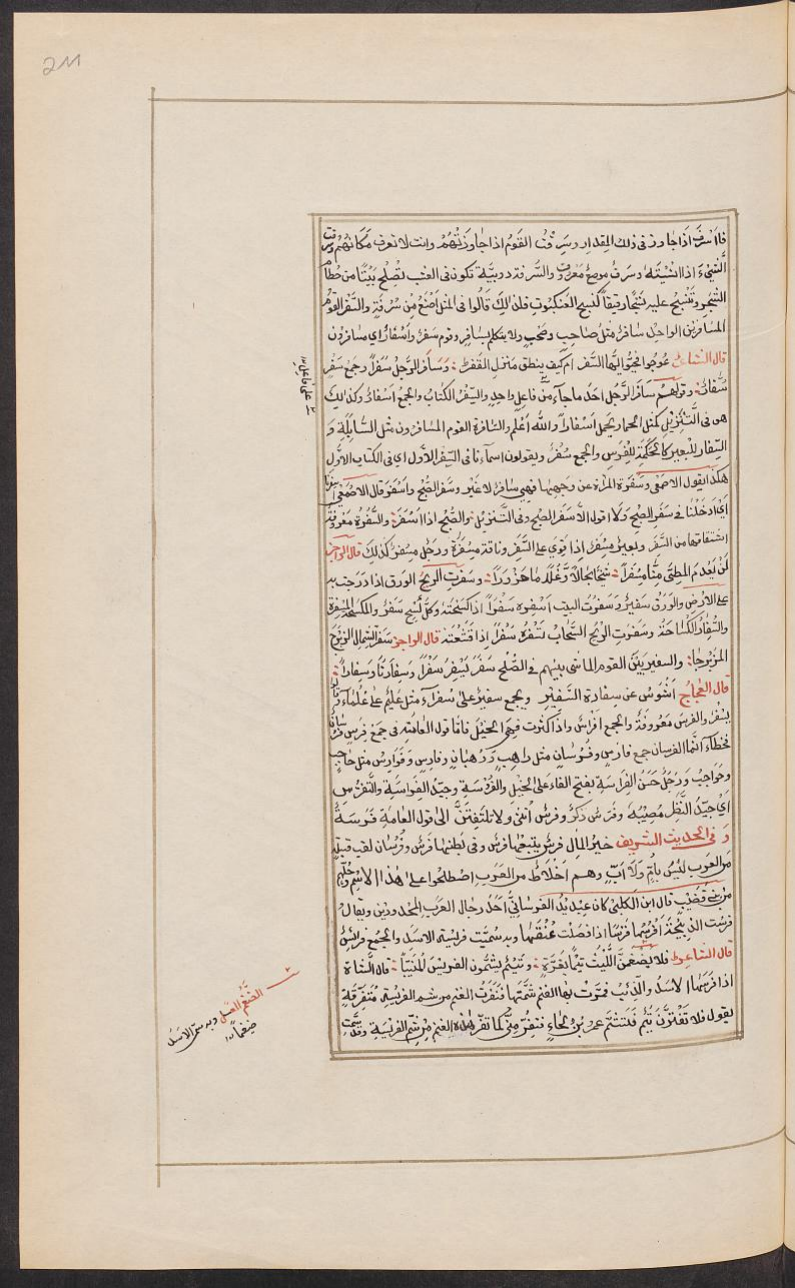 211
فاذا اسرف اذا جاوز فى ذلك المقدار وسَرِفْتُ القَوْمَ اذا جاوزتُهُمْ وانت لا تعرف مَكَانَهُمْ وسرفت
الشَّيْءَ اذا انسَيْتَهُ وسَرِفُ موضِعٌ معروف والسُّرفة دويبَّة تكون فى العشب تُصْلِح بَيْتًا من حُطام
الشَّجَر وتَنْسِجُ عليه نَسْجًا رقيقا كنسج العنكبوت فلذلك قالوا فى المثل أَصْنَعُ مِن سُرْفَةٍ والسَّفْرُ القوم
المسافرين الواحد سافر مثل صاحِبٍ وصَحْبٍ ولا يتكلم بسافر وقوم سَفْرٌ وأسفار اى مسافرون
قال الشاعر عوجوا فحيُّوا ايُّها السَّفْر ام كيف ينطق منزل قفر وسَافَرَ الرَّجُلُ سَفَرًا وجمع سَفْرٍ
سُفَّار وقولهم سافر الرَّجُل احد ما جاء من فاعل واحدٍ والسِّفْرُ الكتاب والجمع اسفار وكذلك
هو فى التَّنزيل كمثل الحمار يحمل اسفارًا والله أعلم والسّافرة القوم المسافرون مثل السَّابِلَة و
السِّفار للبعير كالحَكَمَة للفرس والجمع سُفُر ويقولون اسماءنا فى السِّفر الاوّل اى فى الكتاب الاوّل
هكذا يقول الاصمعى وسَفَرَة المراة عن وجهها فهى سافر لا غير وسفر الصُّبح واسْفَرَ قال الاصمعى اسفرنا
اى دَخَلْنا فى سَفَرِ الصُّبح ولا اقول الّا سَفَر الصبح وفى التنزيل والصُّبح اذا اسفر والسُّفْرة معروفة
اشتقاقها من السَّفَر وبعير مِسْفَر اذا قوى على السَّفَر وناقة مِسْفَرَة ورَجُل مِسْفَر كذلك قال الراجز
لن يَعْدم المطىّ منّا مِسْفَرًا شيخًا بجالًا وغلامًا حَزْوَرًا وسفرت الريح الورق اذا درجت به
على الارض والورق سفير وسفرت البيت اسفره سَفْرًا اذا كنسته وكلُّ كنسٍ سفرٌ والمكنسة المِسْفَرة
والسُّفارة الكُناسَة وسَفَرت الريح السَّحاب تسفُره سَفْرًا اذا قشعته قال الراجز سفر الشمال الزبرج
المزبرجا والسفير بين القوم الماشى بينهم فى الصُّلح سَفَرَ يَسْفِر سَفْرًا وسِفارَةً وسِفارًا
قال العجاج عن سفارة السَّفير ويجمع سفير على سفراء مثل عليم على علماء
والفرس معروفة والجمع أفراس واذا كثرت فهى الخيل فاما قول العامة فى جمع فرس فرسان
فخطاء انّما الفرسان جمع فارس وفرسان مثل راهبٍ ورهبانٍ وفارس وفوارس مثل حاجب
وحواجب ورجل حَسَن الفَراسة بفتح الفاء على الخيل والفروسة وجيّد الفِراسة والتفرّس
اى جيّد النَّظر مصيبه وفرس ذكر وفرس أنثى ولا تلتفتنَّ الى قول العامة فرسة
وفى الحديث الشريف خير المال فرس يتبعها فرس وفى بطنها فرس وفُرسان لقب قبيلةٍ
من العرب ليس بأُمٍّ ولا أبٍ وهم أخلاط من العرب اصطلحوا على هذا الاسم وكلهم
من بنى قال ابن الكلبى كان عبديد الفرسانىّ احد رجال العرب المعدودين ويقال
فرست الذبيحة افرِسُها فرسًا اذا فصلت عنقها وبه سُمّيت فريسة الاسد والجمع فرائس
قال الشاعر فلا يضغمنَّ اللَّيث تيمًا بغِرَّة وتَيْم يشمُّون الفريس المُنَيَّبا قال الشاة
اذا فرسها الاسد والذئب فمرّت بها الغنم شمَّتها فنفرت الغنم من شم الفريسة متفرقة
يقول فلا تغترّن تيم فلتشتم عمر بن لجاء فتنفر منّى كما تفرّ هذه الغنم من شم الفريسة
على فاعل
الضغم العض
وبه سمى الاسد
ضيغما